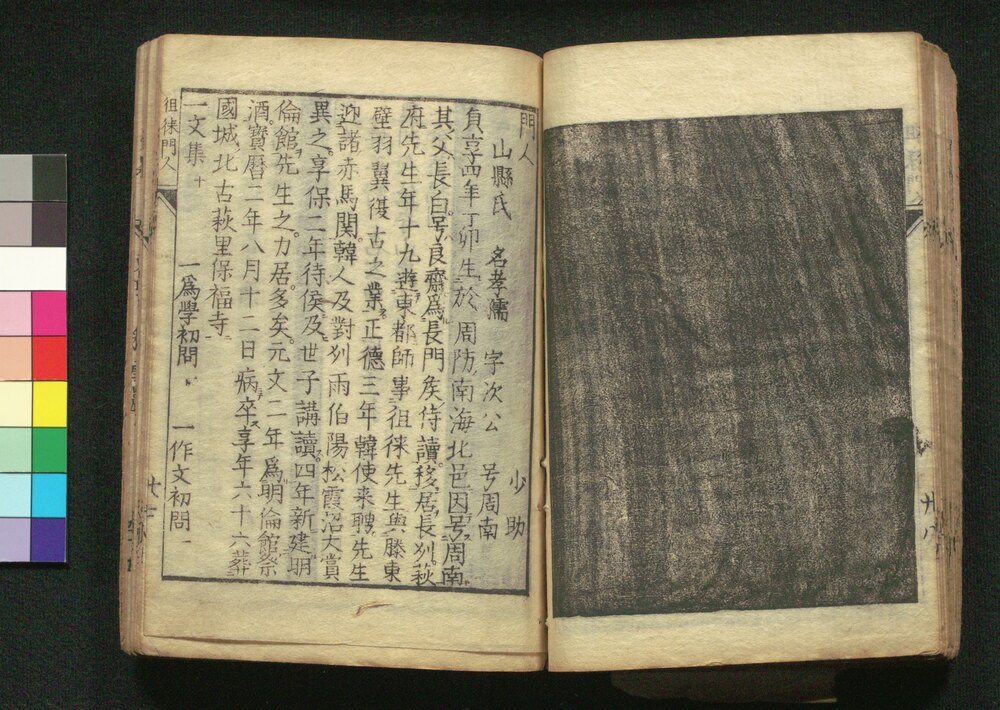 門人
山縣氏 名孝孺 字次公 号周南 少助
貞享四年丁卯生於周防南海北邑因号周南
其父長白号良齋為長門矦侍讀移居長刕萩
府先生年十九遊東都師事徂徠先生與滕東
壁羽翼復古之業正德三年韓使来聘先生
迎諸赤馬関韓人及對刕雨伯陽松霞沼大賞
異之享保二年待侯及世子講讀四年新建明
倫館先生之力居多矣元文二年為明倫館祭
酒寶曆二年八月十二日病卒享年六十六葬
國城北古萩里保福寺
一文集 十 一為學初問 一作文初問
徂徠門人